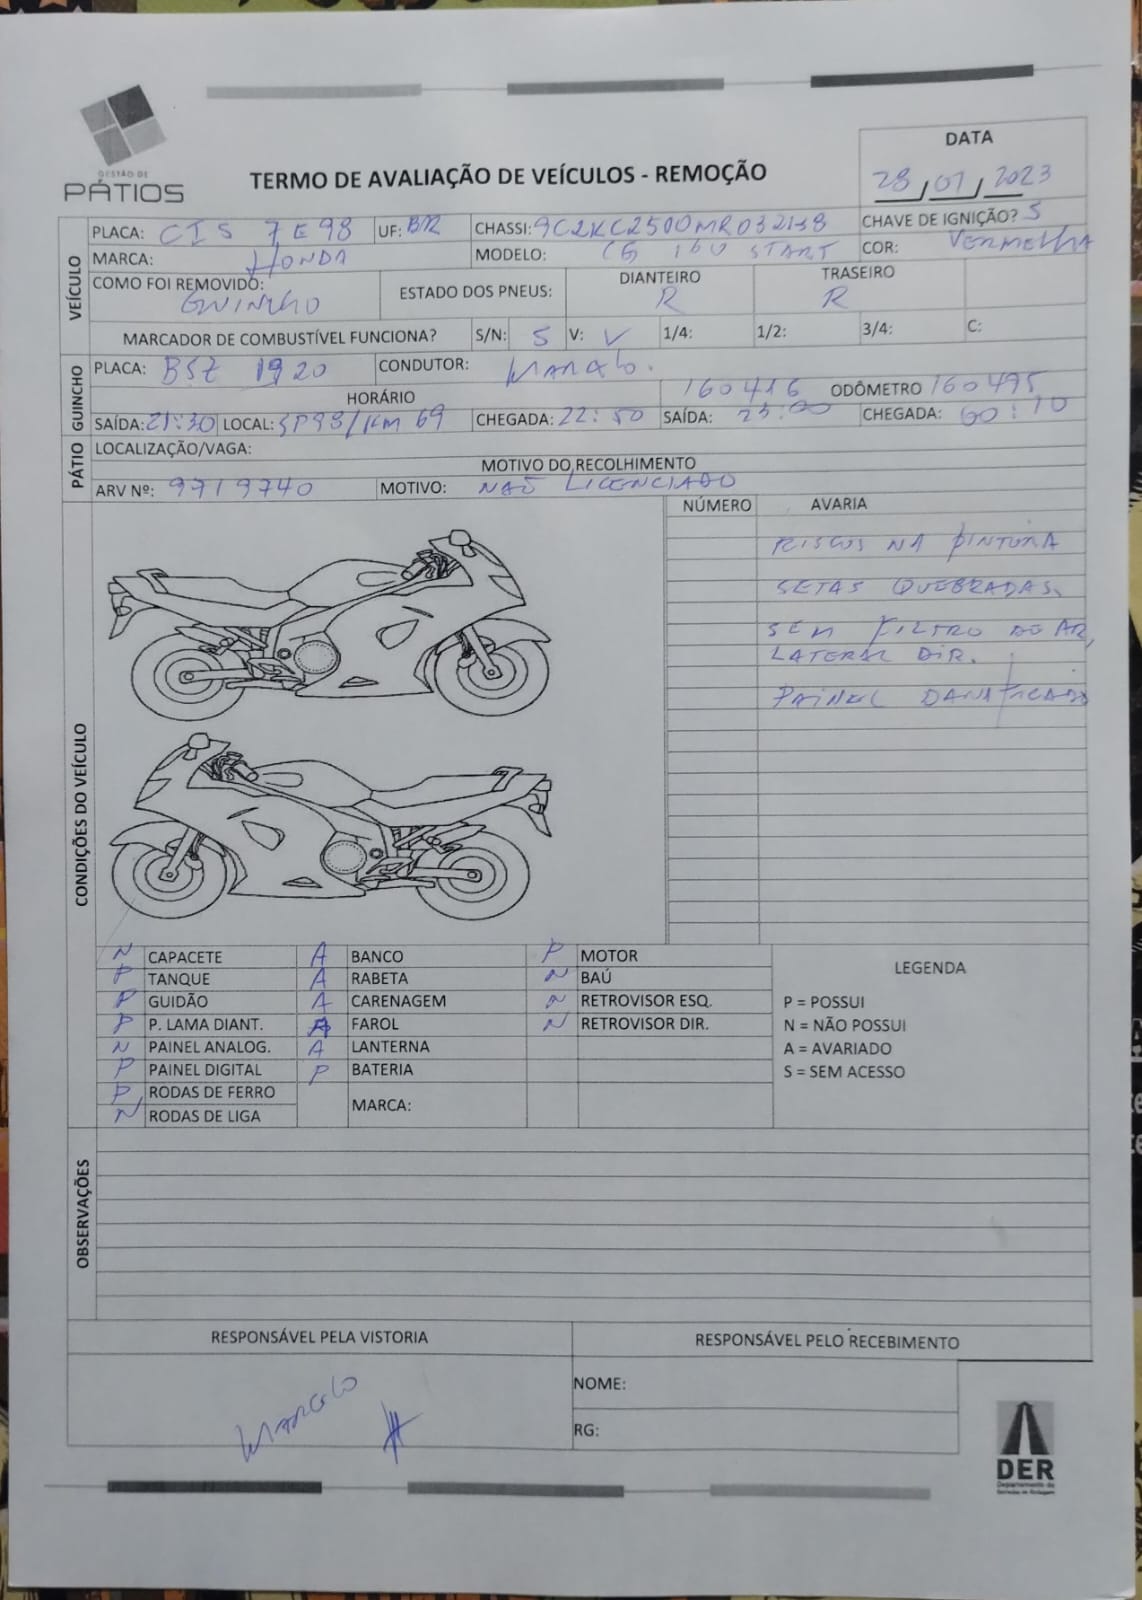 GESTÃO DE
PÁTIOS
TERMO DE AVALIAÇÃO DE VEÍCULOS - REMOÇÃO
DATA
28/01/2023
VEÍCULO
PLACA: CIS 7E98 UF: BR CHASSI: 9C2KC2500MR032138 CHAVE DE IGNIÇÃO? S
MARCA: HONDA MODELO: CG 160 START COR: VERMELHA
COMO FOI REMOVIDO: GUINCHO ESTADO DOS PNEUS: DIANTEIRO R TRASEIRO R
MARCADOR DE COMBUSTÍVEL FUNCIONA? S/N: S V: V 1/4: 1/2: 3/4: C:
GUINCHO
PLACA: BSZ 1920 CONDUTOR: MARCELO.
HORÁRIO 160416 ODÔMETRO 160495
SAÍDA: 21:30 LOCAL: SP98/KM 69 CHEGADA: 22:50 SAÍDA: 23:00 CHEGADA: 00:10
PÁTIO
LOCALIZAÇÃO/VAGA:
MOTIVO DO RECOLHIMENTO
ARV Nº: 9719740 MOTIVO: NAÕ LICENCIADO
CONDIÇÕES DO VEÍCULO
NÚMERO AVARIA
RISCOS NA PINTURA
SETAS QUEBRADAS,
SEM FILTRO DE AR,
LATERAL DIR.
PAINEL DANIFICADO
N CAPACETE A BANCO P MOTOR
P TANQUE A RABETA N BAÚ
P GUIDÃO A CARENAGEM N RETROVISOR ESQ.
P P. LAMA DIANT. A FAROL N RETROVISOR DIR.
N PAINEL ANALOG. A LANTERNA
P PAINEL DIGITAL P BATERIA
P RODAS DE FERRO MARCA:
N RODAS DE LIGA
LEGENDA
P = POSSUI
N = NÃO POSSUI
A = AVARIADO
S = SEM ACESSO
OBSERVAÇÕES
RESPONSÁVEL PELA VISTORIA RESPONSÁVEL PELO RECEBIMENTO
MARCELO
NOME:
RG:
DER
Departamento de
Estradas de Rodagem